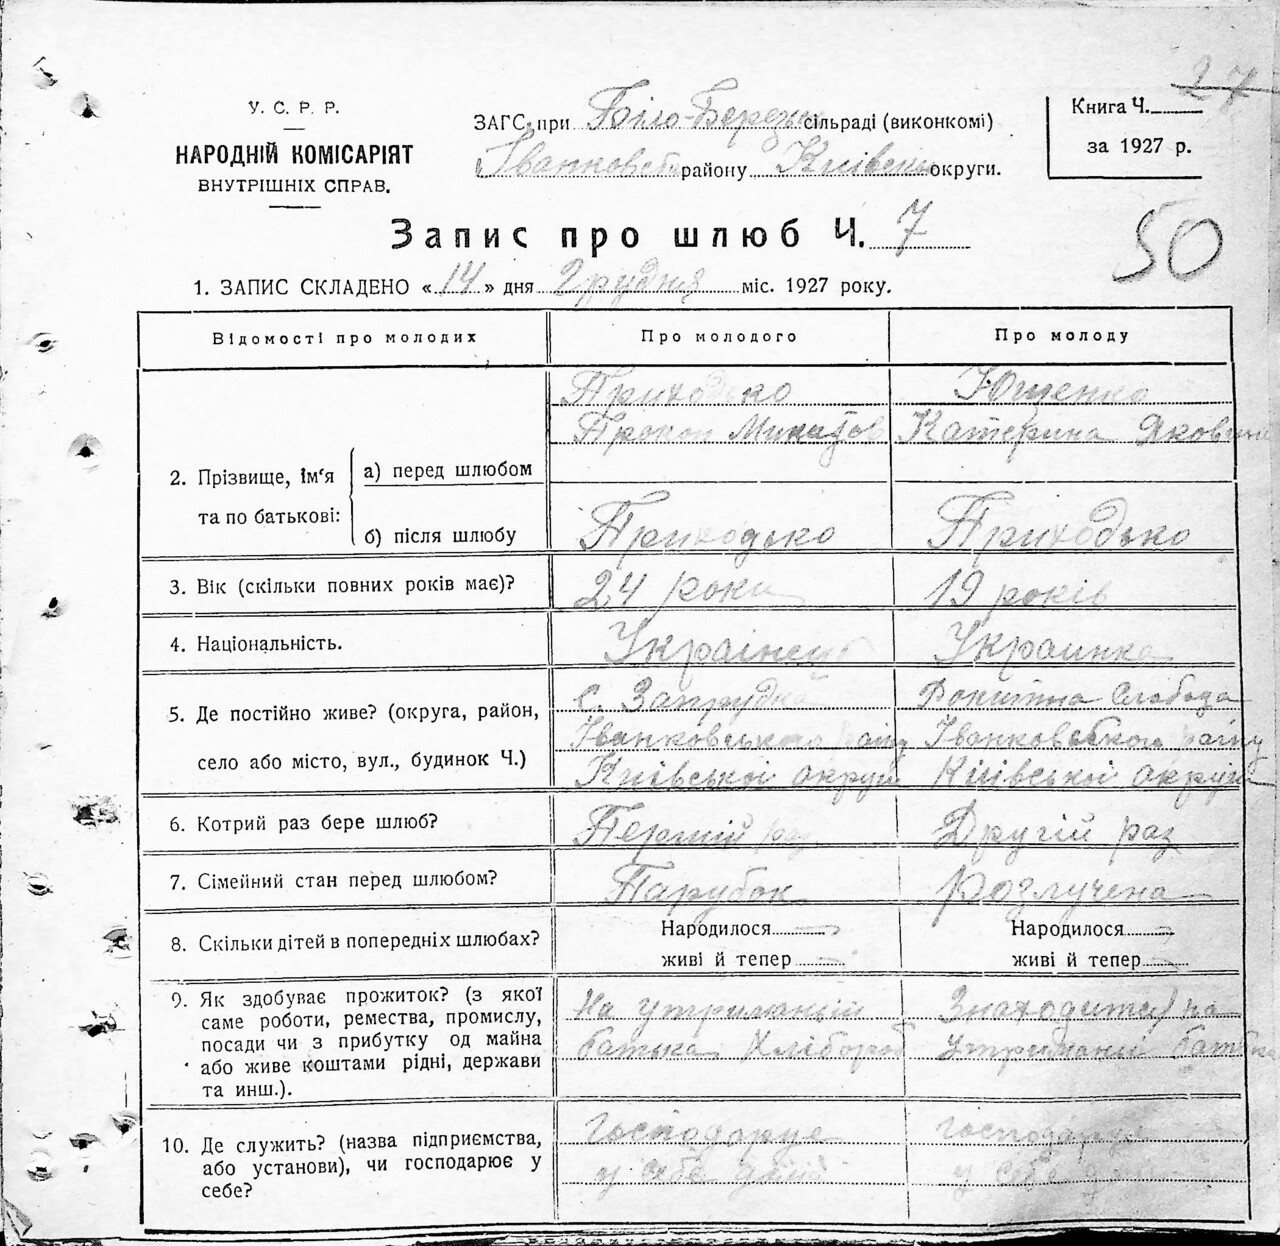 27
У. С. Р. Р.
НАРОДНІЙ КОМІСАРІЯТ
ВНУТРІШНІХ СПРАВ.
ЗАГС при Біло-Бережс сільраді (виконкомі)
Іванковськ району Київськ округи.
Книга Ч.
за 1927 р.
Запис про шлюб Ч. 7
50
1. ЗАПИС СКЛАДЕНО «14» дня Грудня міс. 1927 року.
Відомості про молодих Про молодого Про молоду
Приходько Ющенко
Прокоп Катерина Яковна
2. Прізвище, ім'я та по батькові:
а) перед шлюбом
б) після шлюбу Приходько Приходько
3. Вік (скільки повних років має)? 24 роки 19 років
4. Національність. Українець Украинка
5. Де постійно живе? (округа, район, село або місто, вул., будинок Ч.)
с. Запрудка Слобода
Іванковського району Іванковського району
Київської округи Київської округи
6. Котрий раз бере шлюб? Перший раз Другій раз
7. Сімейний стан перед шлюбом? Парубок Розлучена
8. Скільки дітей в попередніх шлюбах? Народилося — Народилося —
живі й тепер — живі й тепер —
9. Як здобуває прожиток? (з якої
саме роботи, ремества, промислу,
посади чи з прибутку од майна
або живе коштами рідні, держави
та инш.).
На утриманій Знаходится на
батька Хлібороб утриманій батька
10. Де служить? (назва підприємства,
або установи), чи господарює у
себе?
Господарує Господарує
у себе дома у себе дома